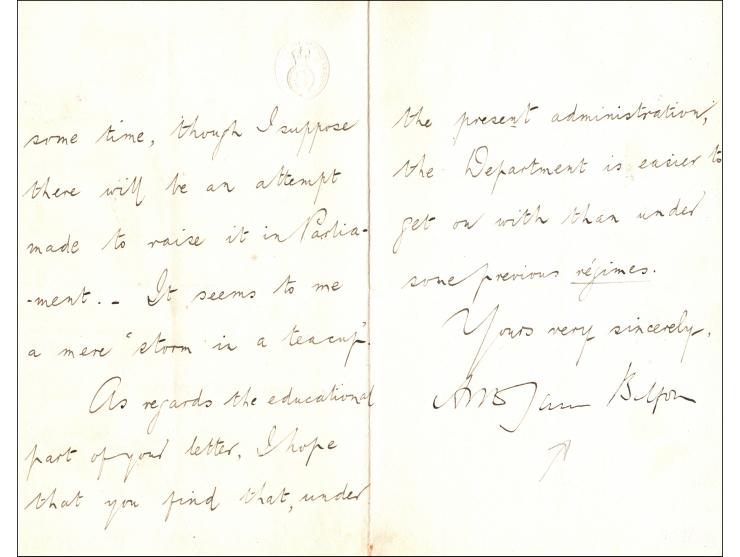 some time, though I suppose
there will be an attempt
made to raise it in Parlia-
-ment. - It seems to me
a mere "storm in a teacup".
As regards the educational
part of your letter, I hope
that you find that, under
the present administration,
the Department is easier to
get on with than under
some previous régimes.
Yours very sincerely,
Balfour